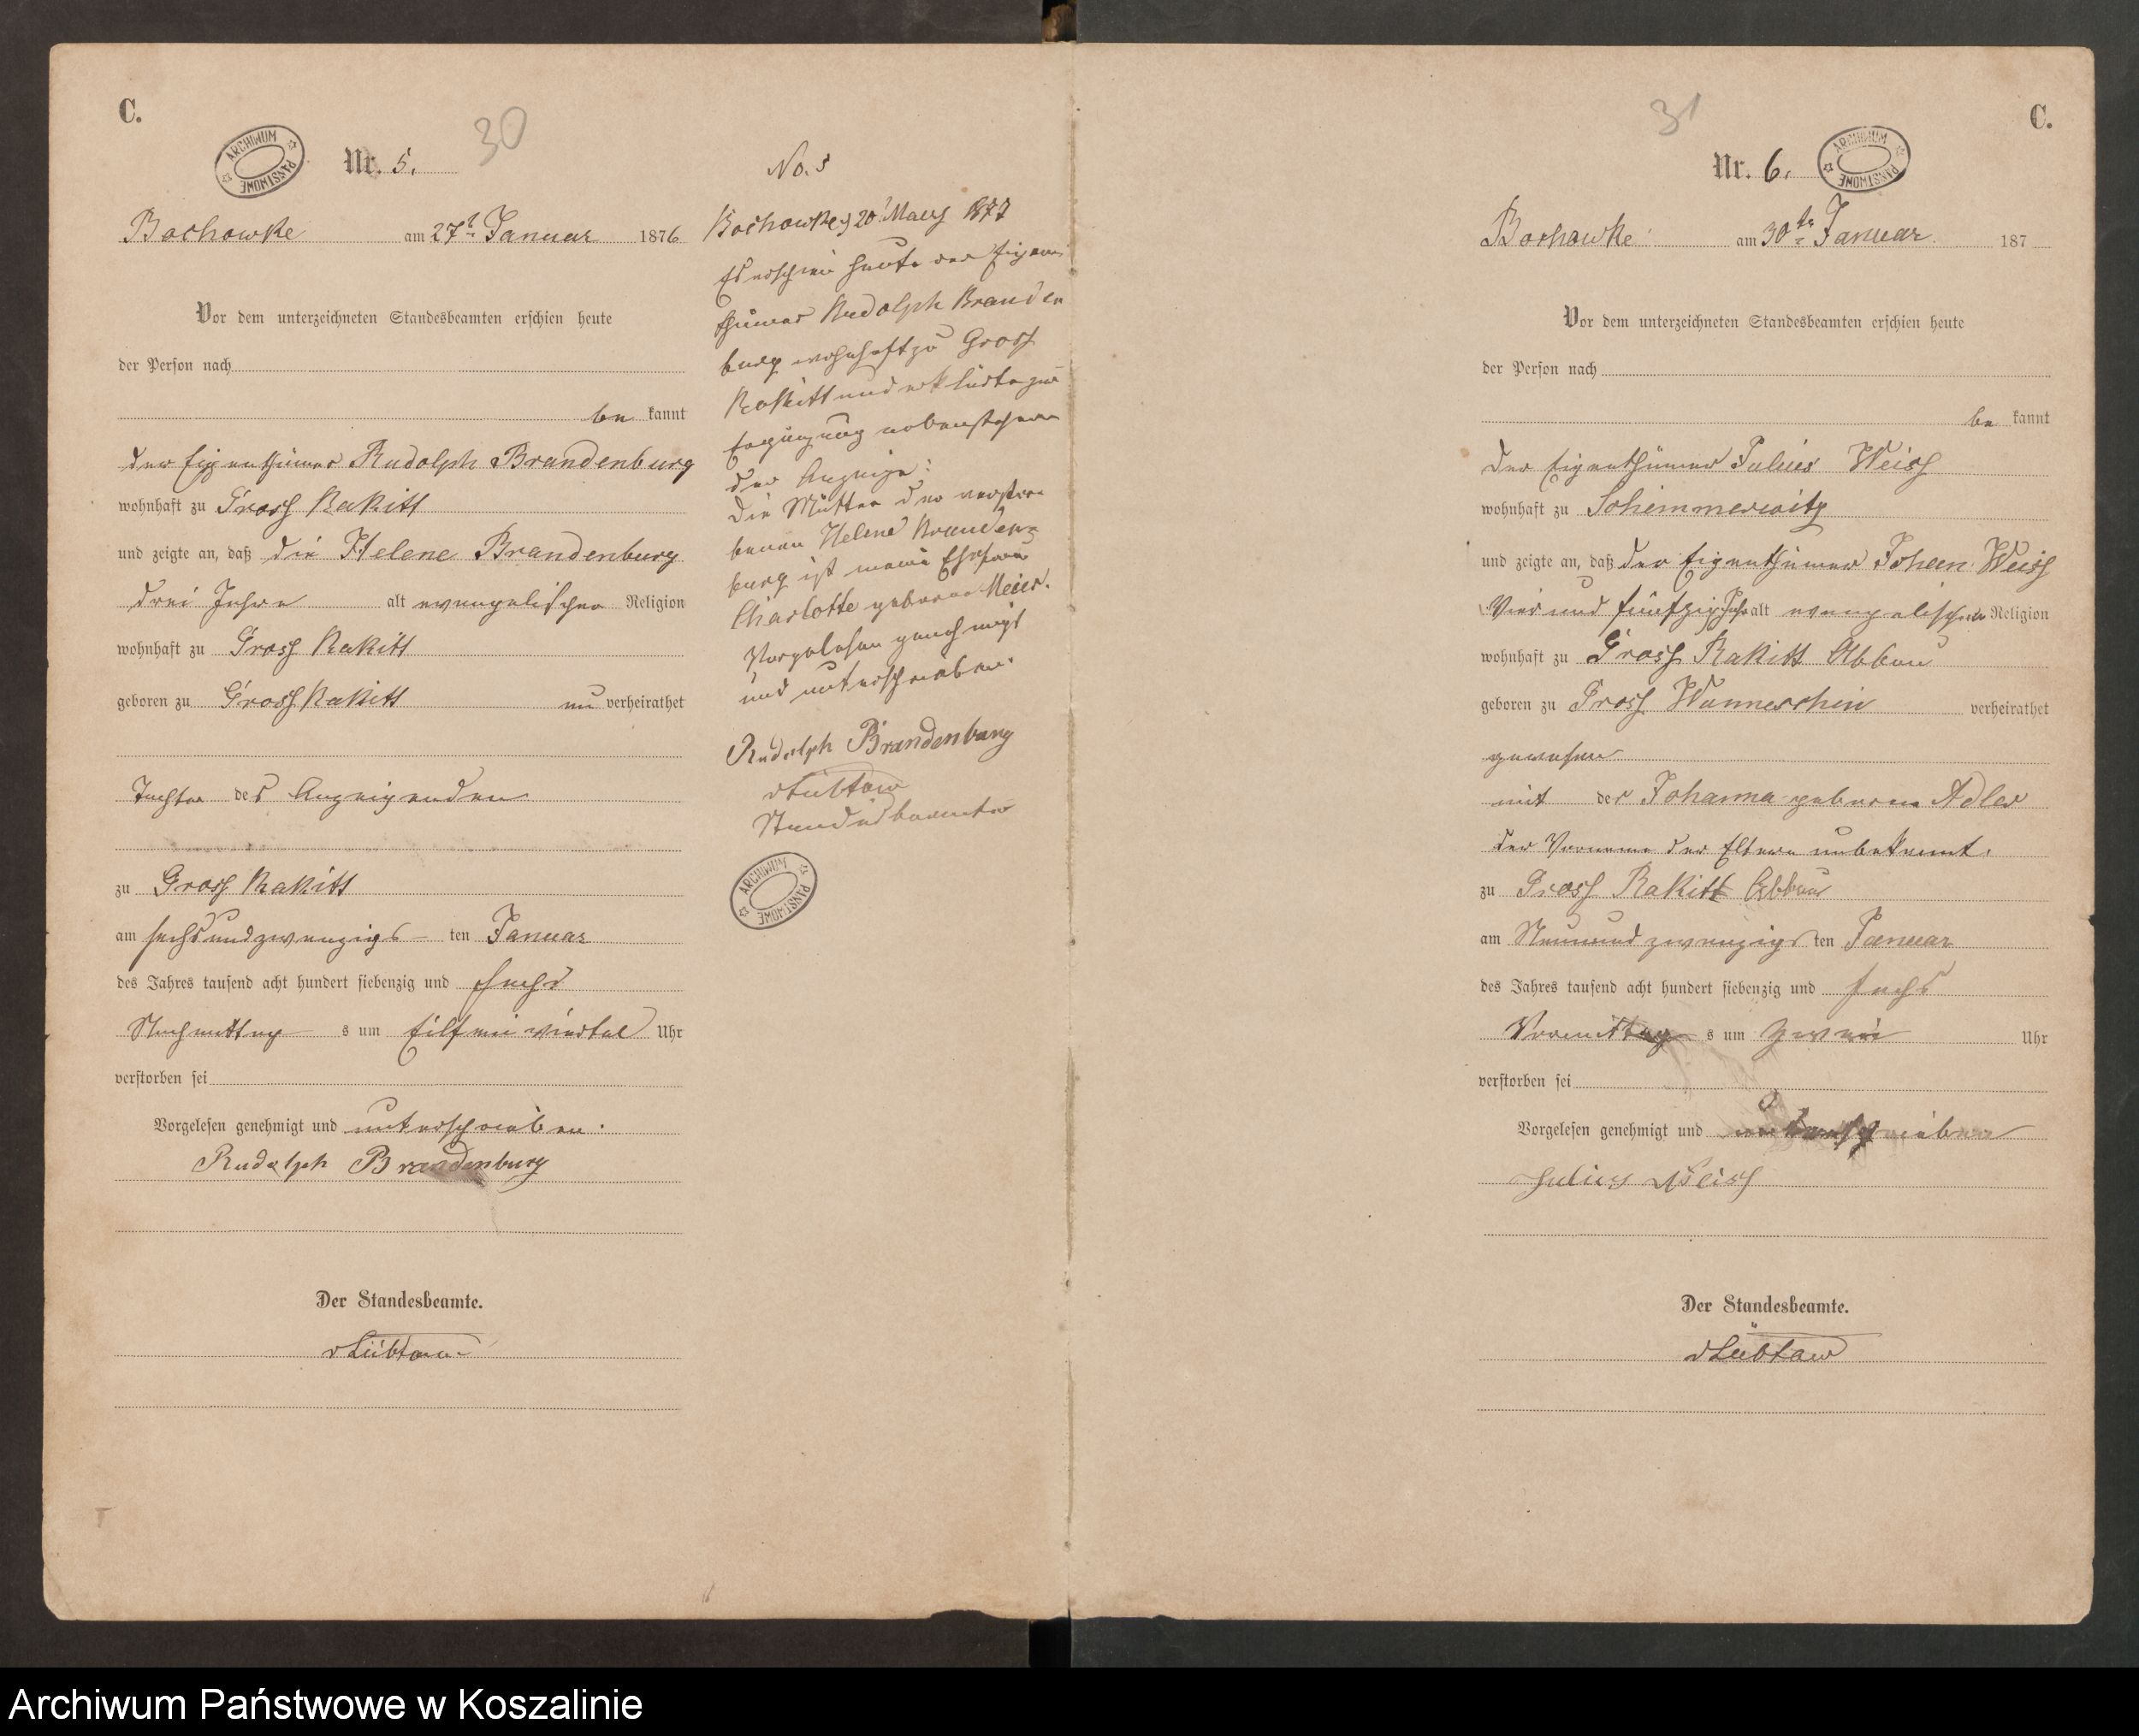 C.
Nr. 5.
30
Bochowke am 27t Januar 1876
Vor dem unterzeichneten Standesbeamten erschien heute
der Person nach
be kannt
der Eigenthümer Rudolph Brandenburg
wohnhaft zu Gross Rakitt
und zeigte an, daß die Helene Brandenburg
drei Jahre alt evangelischer Religion
wohnhaft zu Gross Rakitt
geboren zu Gross Rakitt un verheirathet
Tochter des Anzeigenden
zu Gross Rakitt
am sechsundzwanzigs ten Januar
des Jahres tausend acht hundert siebenzig und sechs
Nachmittag s um Eilf ein viertel Uhr
verstorben sei
Vorgelesen genehmigt und unterschrieben.
Rudolph Brandenburg
Der Standesbeamte.
vLübtow
No. 5
Bochowke, 20 1877
Es erschien heute der Eigen
thümer Rudolph Branden
burg wohnhaft zu Gross
Rakitt und erklärte zur
Ergänzung nebenstehen
der Anzeige:
Die Mutter der verstor
benen Helene Branden
burg ist meine Ehefrau
Charlotte geborne Meier.
Vorgelesen genehmigt
und unterschrieben.
Rudolph Brandenburg
vLübtow
Standesbeamter
ARCHIWUM PAŃSTWOWE
C.
31
Nr. 6.
ARCHIWUM PAŃSTWOWE
Bochowke am 30te Januar 187
Vor dem unterzeichneten Standesbeamten erschien heute
der Person nach
be kannt
der Eigenthümer Julius Weiss
wohnhaft zu Schimmerwitz
und zeigte an, daß der Eigenthümer Johann Weiss
Vier und fünfzig Jahr alt evangelischer Religion
wohnhaft zu Gross Rakitt Abbau
geboren zu Gross Wunneschin verheirathet
gewesen
mit der Johanna geborne Adler
der Vorname der Eltern unbekannt.
zu Gross Rakitt Abbau
am Neunundzwanzigs ten Januar
des Jahres tausend acht hundert siebenzig und sechs
Vormittag s um zwei Uhr
verstorben sei
Vorgelesen genehmigt und unterschrieben
Julius Weiss
Der Standesbeamte.
vLübtow
Archiwum Państwowe w Koszalinie